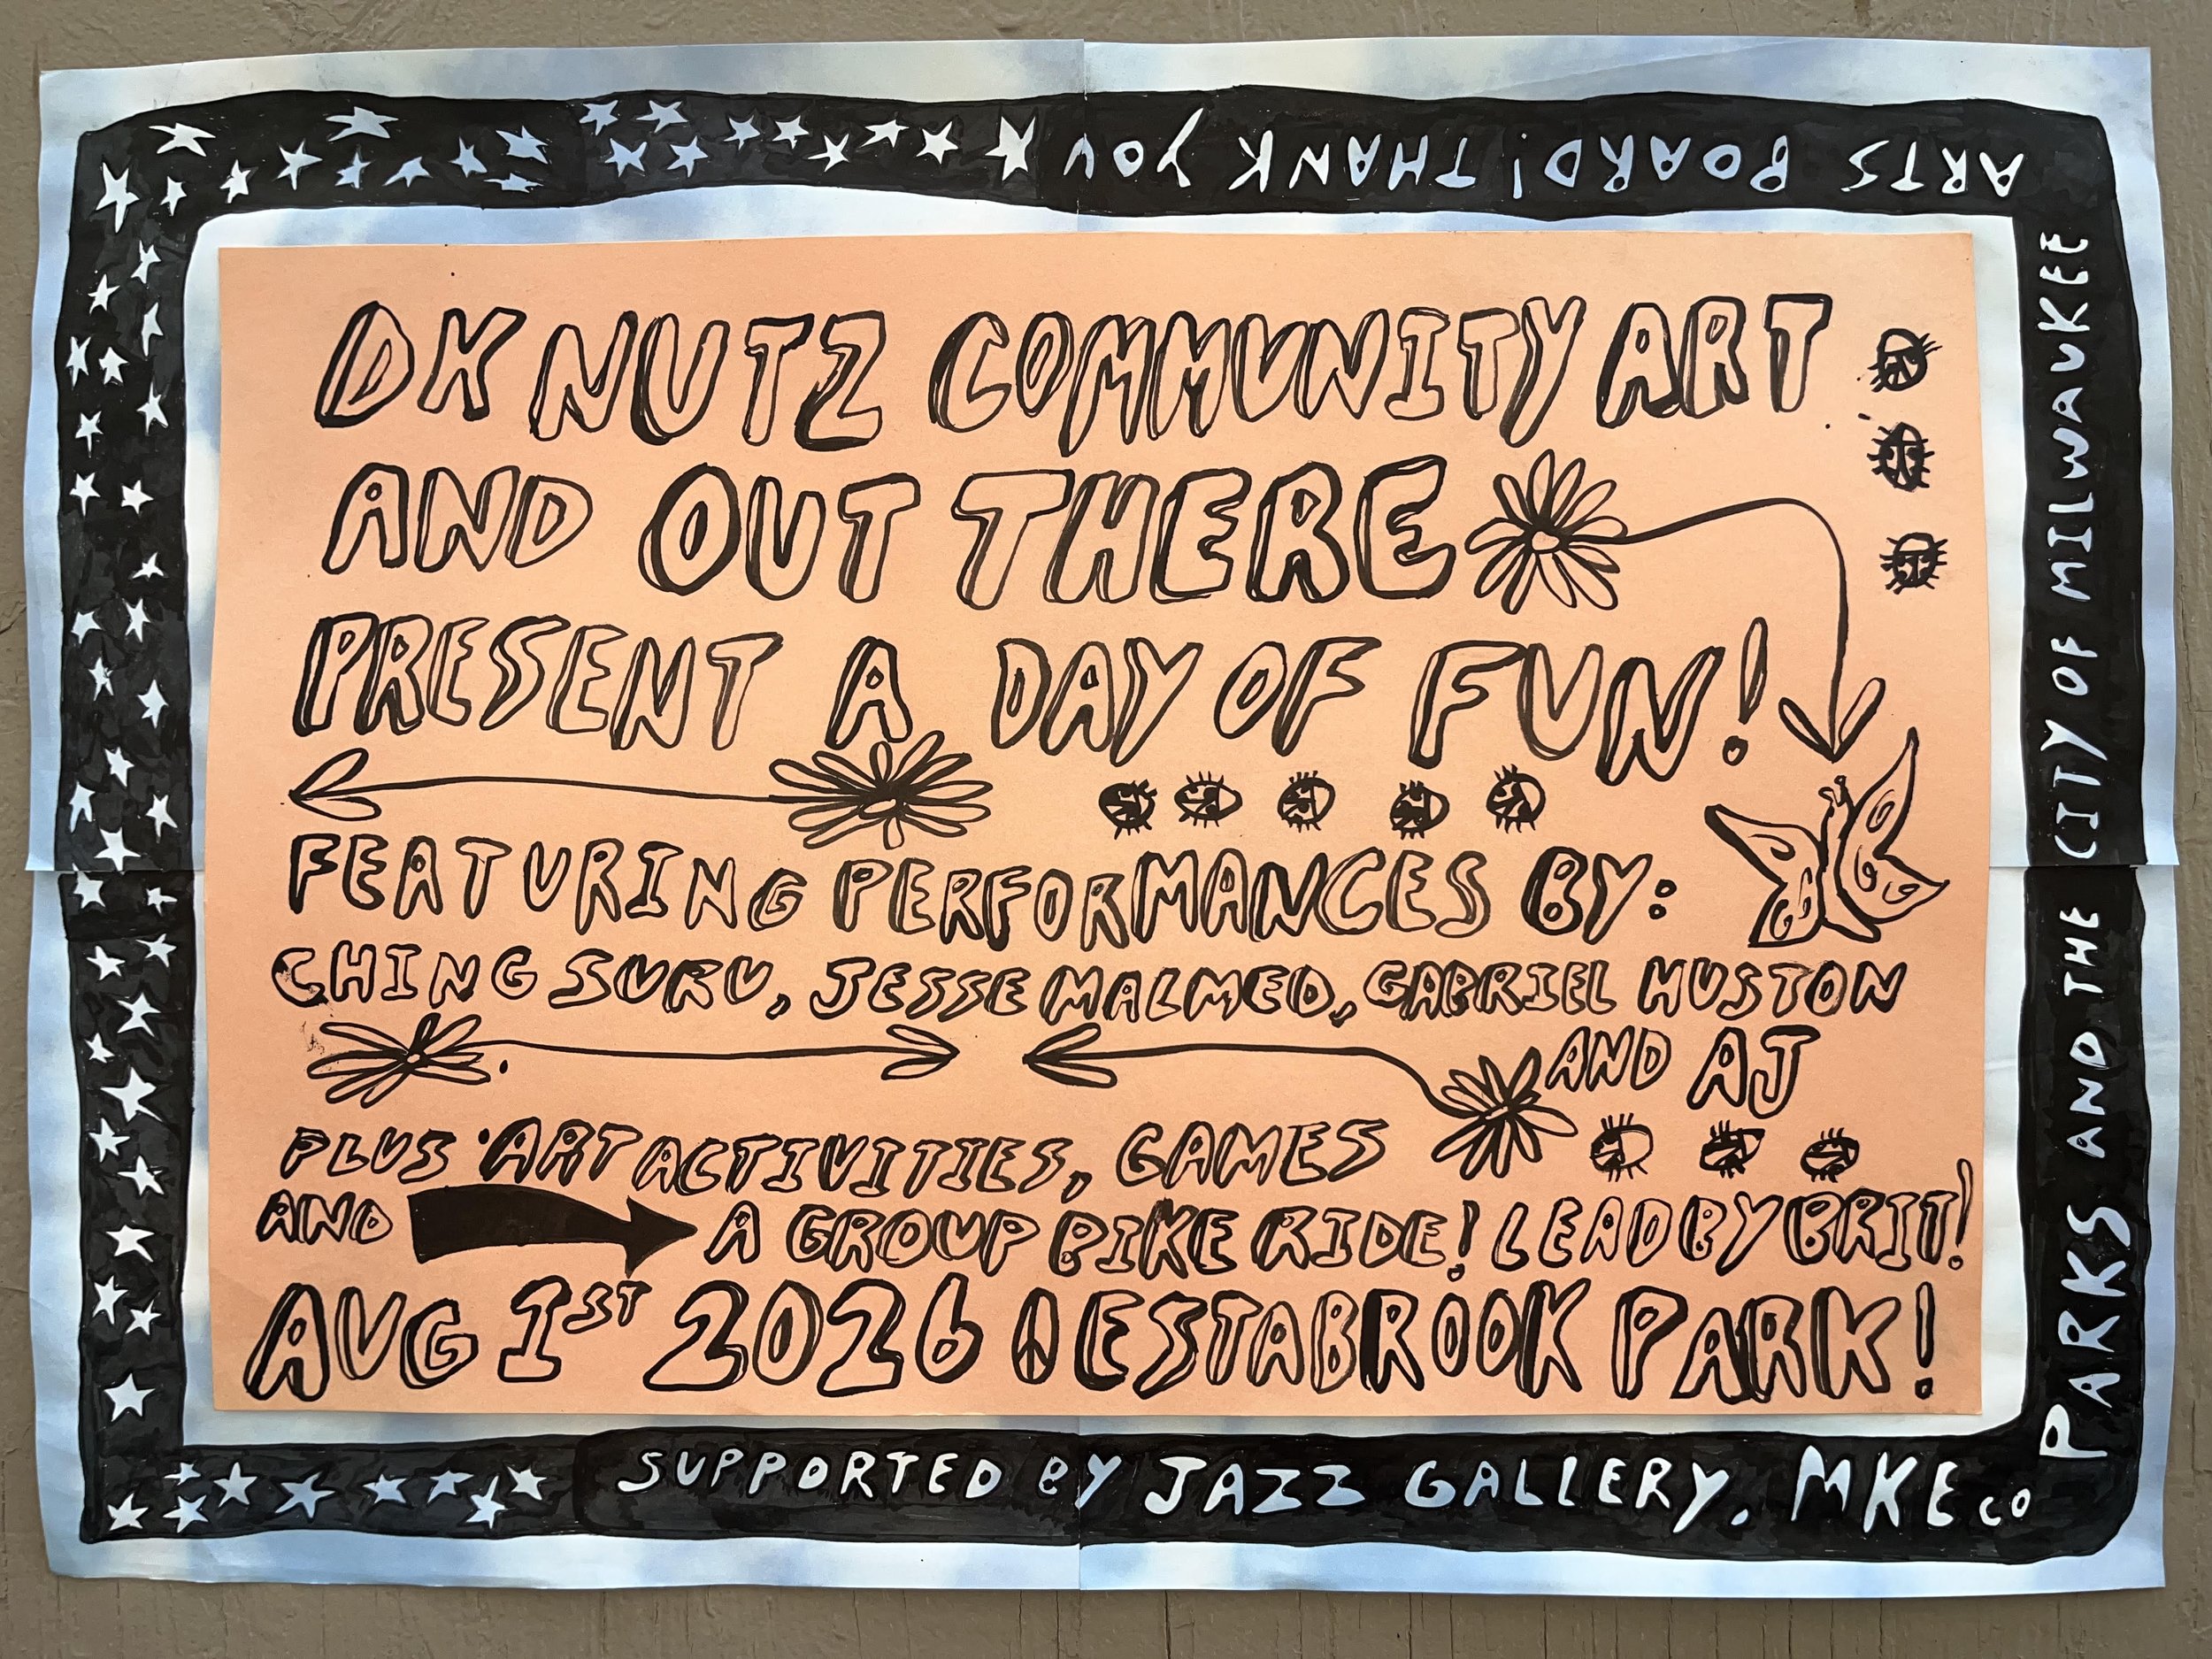 DK NUTZ COMMUNITY ART
AND OUT THERE
PRESENT A DAY OF FUN!
FEATURING PERFORMANCES BY:
CHING SURU, JESSE MALMED, GABRIEL HUSTON
AND AJ
PLUS ART ACTIVITIES, GAMES
AND A GROUP BIKE RIDE! LEAD BY BRIT!
AUG 1ST 2026 ESTABROOK PARK!
SUPPORTED BY JAZZ GALLERY, MKE CO
PARKS AND THE CITY OF MILWAUKEE
ARTS BOARD! THANK YOU